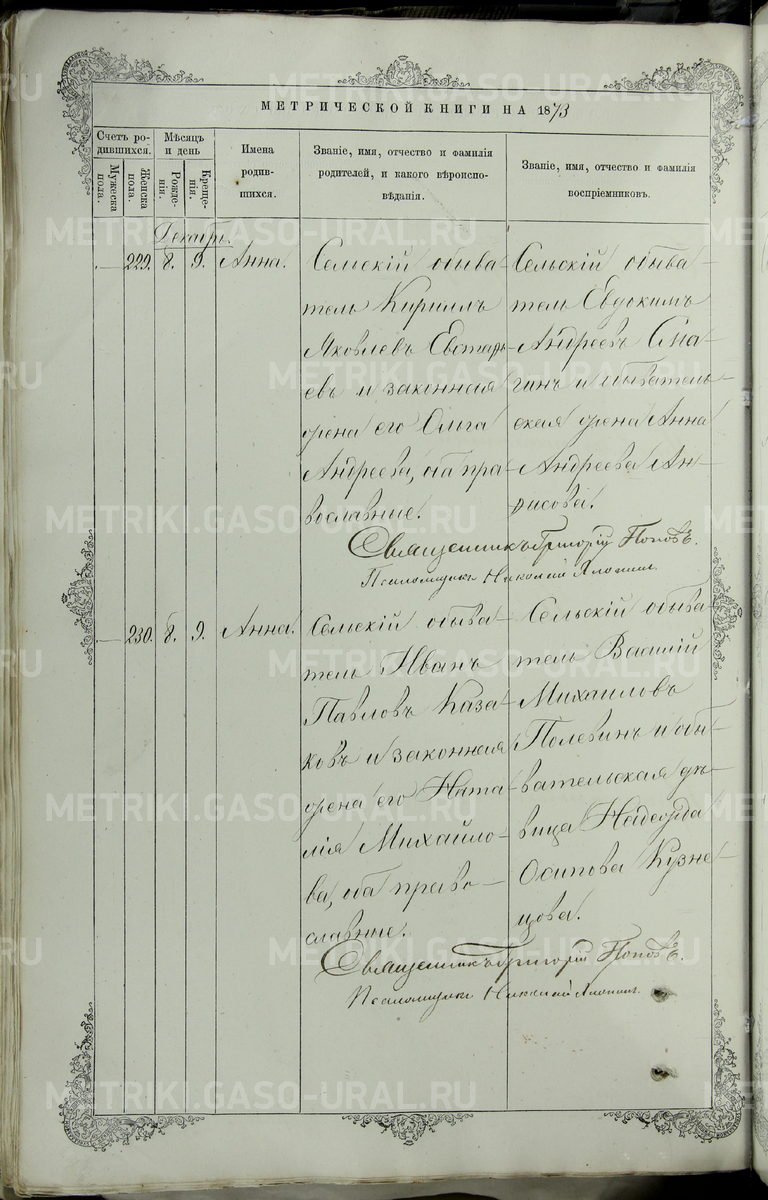 МЕТРИЧЕСКОЙ КНИГИ НА 1873
Счетъ ро-
дившихся.
Мужеска
пола.
Женска
пола.
Мѣсяцъ
и день
Рожде-
нія.
Креще-
нія.
Имена
родив-
шихся.
Званіе, имя, отчество и фамилія
родителей, и какого вѣроиспо-
вѣданія.
Званіе, имя, отчество и фамилія
воспріемниковъ.
Декабрь.
229. 8. 9. Анна.
Сельскій обыва-
тель Кириллъ
Яковлевъ
евъ и законная
жена его Ольга
Андреева, оба пра-
вославные.
Сельскій обыва-
тель Евдокимъ
Андреевъ Сма-
гинъ и обыватель-
ская жена Анна
Андреева Ан-
Священникъ Григорій Поповъ.
Псаломщикъ Николай
230. 8. 9. Анна.
Сельскій обыва-
тель Иванъ
Павловъ Каза-
ковъ и законная
жена его Ната-
лія Михайло-
ва, оба право-
славные.
Сельскій обыва-
тель Василій
Михаиловъ
Полевинъ и обы-
вательская дѣ-
вица Надежда
Осипова Кузне-
цова.
Священникъ Григорій Поповъ.
Псаломщикъ Николай
METRIKI.GASO-URAL.RU